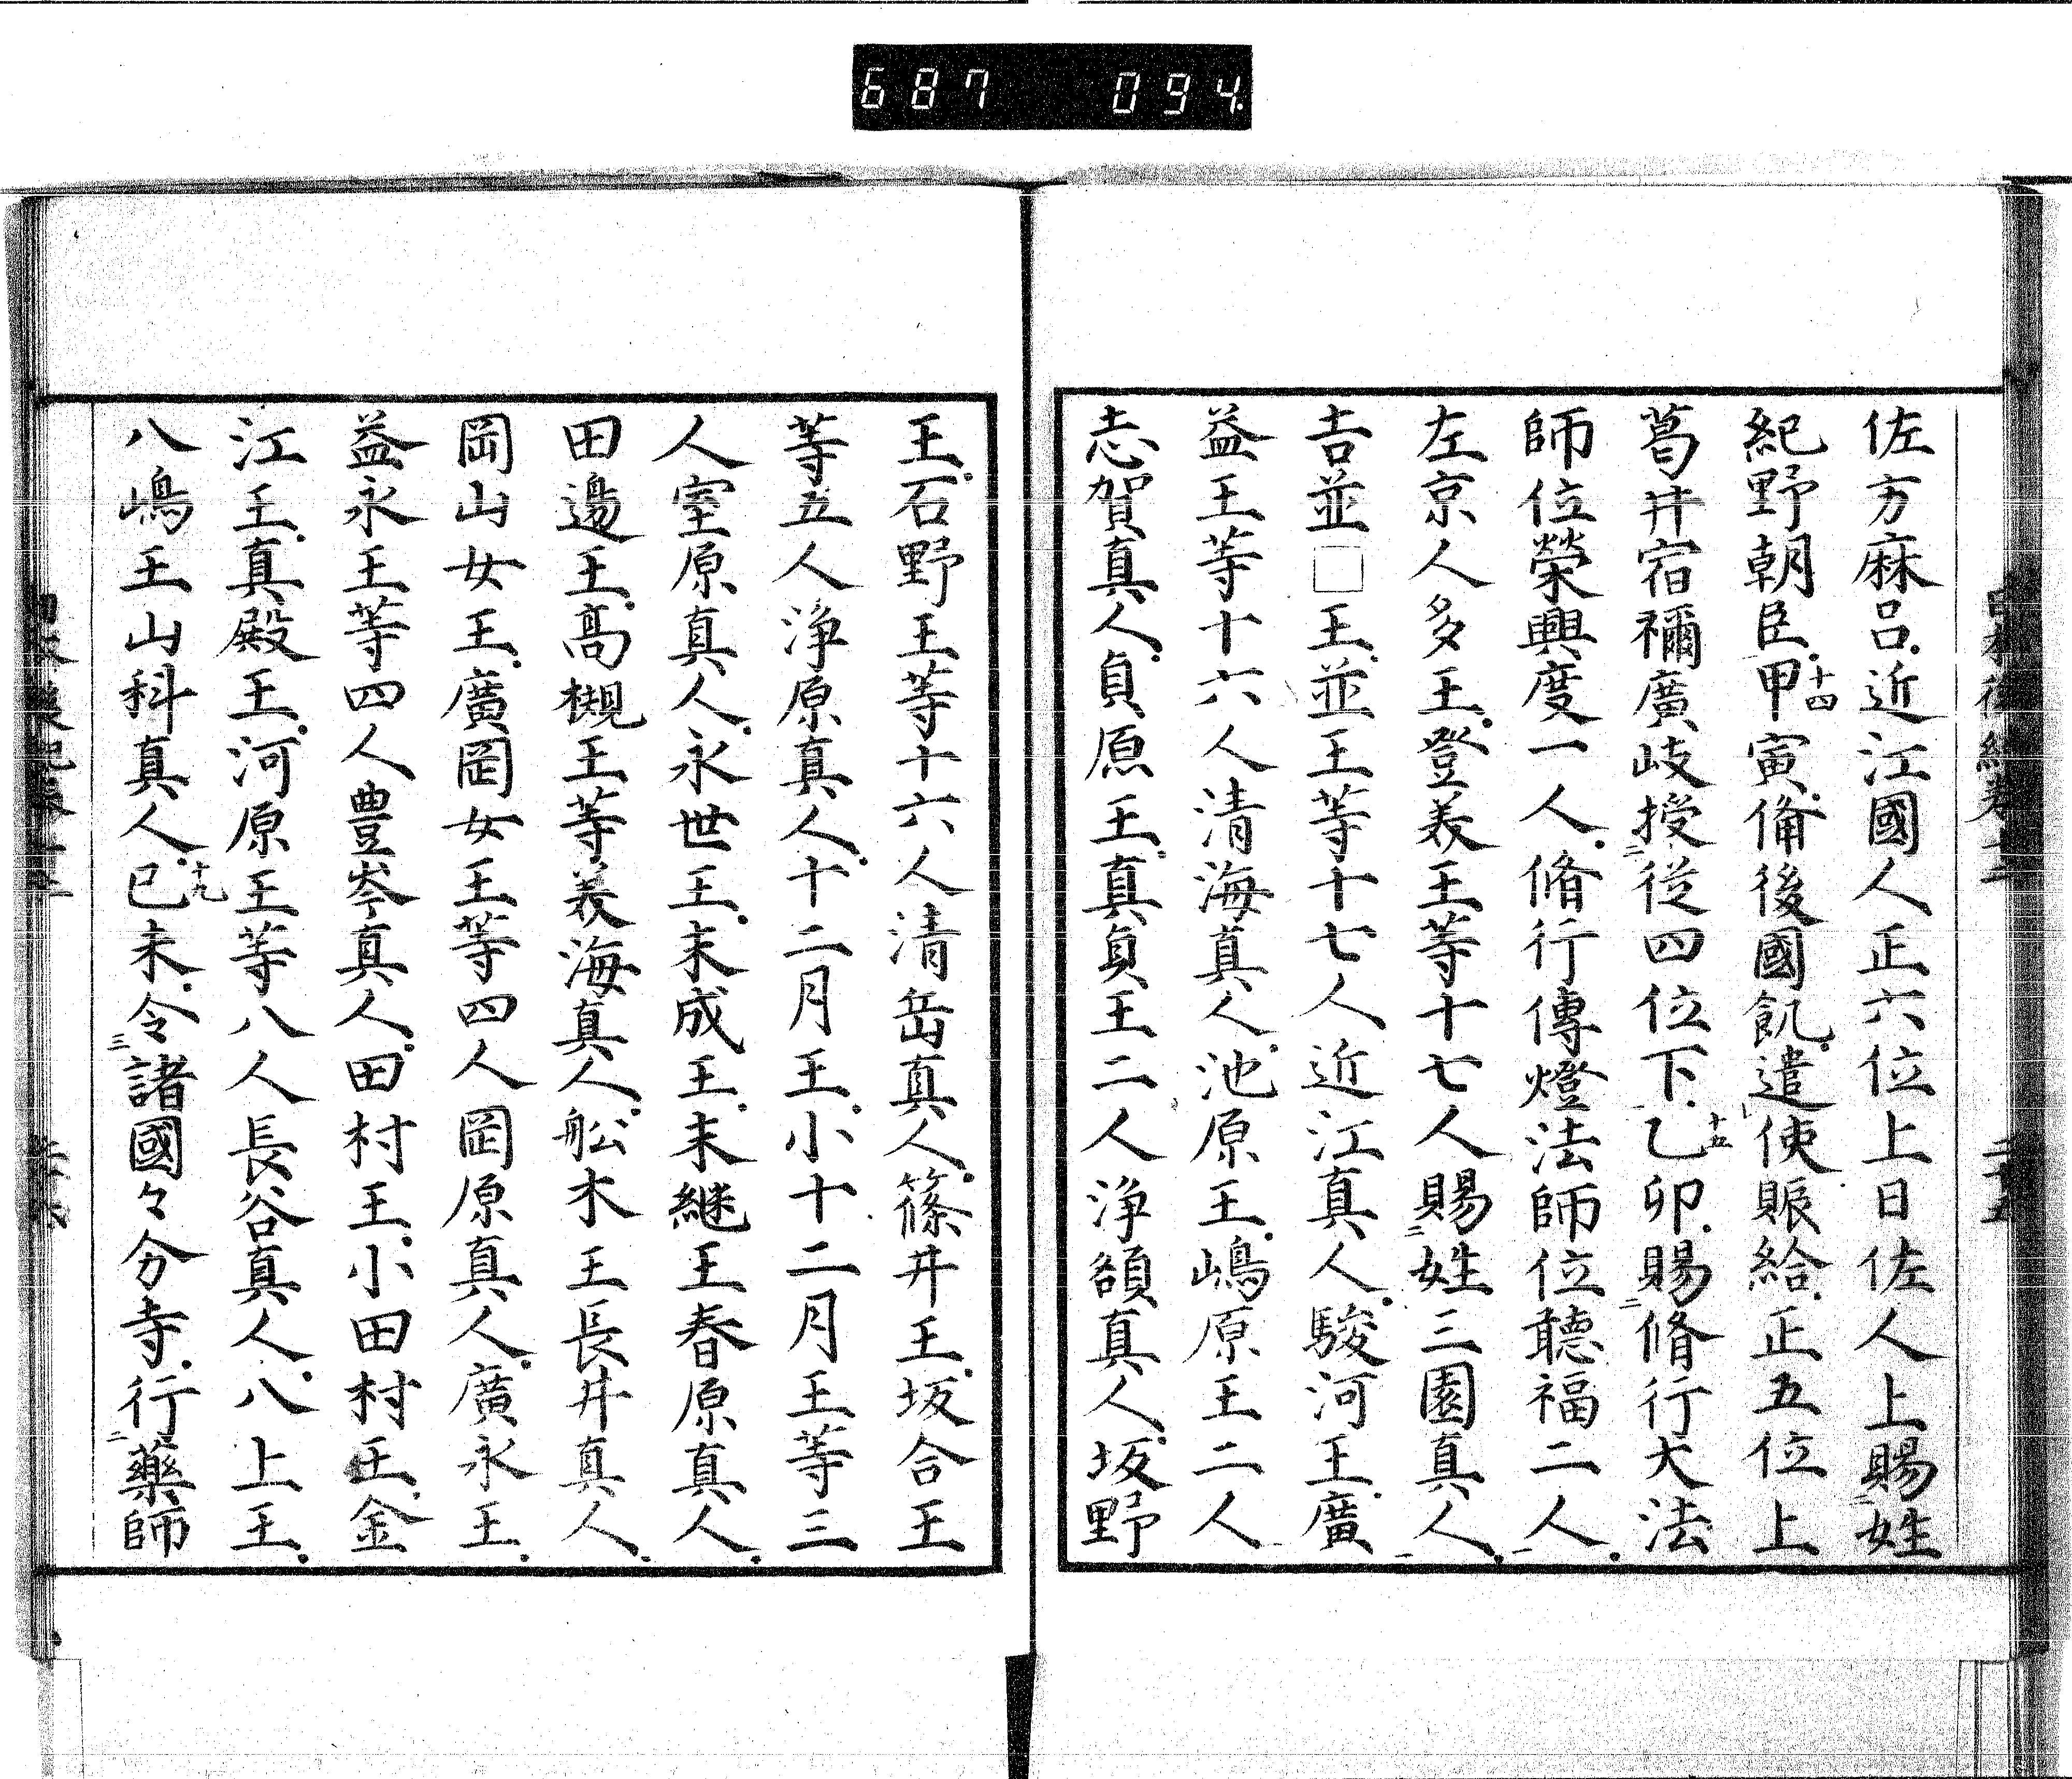 687 094
佐方麻呂近江國人正六位上日佐人上賜姓
紀野朝臣甲寅十四備後國飢遣使賑給正五位上
葛井宿禰廣岐授二從四位下一乙卯十五賜二脩行大法
師位榮興度一人脩行傳燈法師位聽福二人一
左京人多王登美王等十七人賜二姓三園真人一
吉並□王並王等十七人近江真人駿河王廣
益王等十六人清海真人池原王嶋原王二人
志賀真人貞原王真貞王二人淨額真人坂野
王石野王等十六人清岳真人篠井王坂合王
等五人淨原真人十二月王小十二月王等三
人室原真人永世王末成王末継王春原真人
田邊王高槻王等美海真人舩木王長井真人
岡山女王廣岡女王等四人岡原真人廣永王
益永王等四人豊岑真人田村王小田村王金
江王真殿王河原王等八人長谷真人八上王
八嶋王山科真人已未十九令三諸國々分寺行二藥師